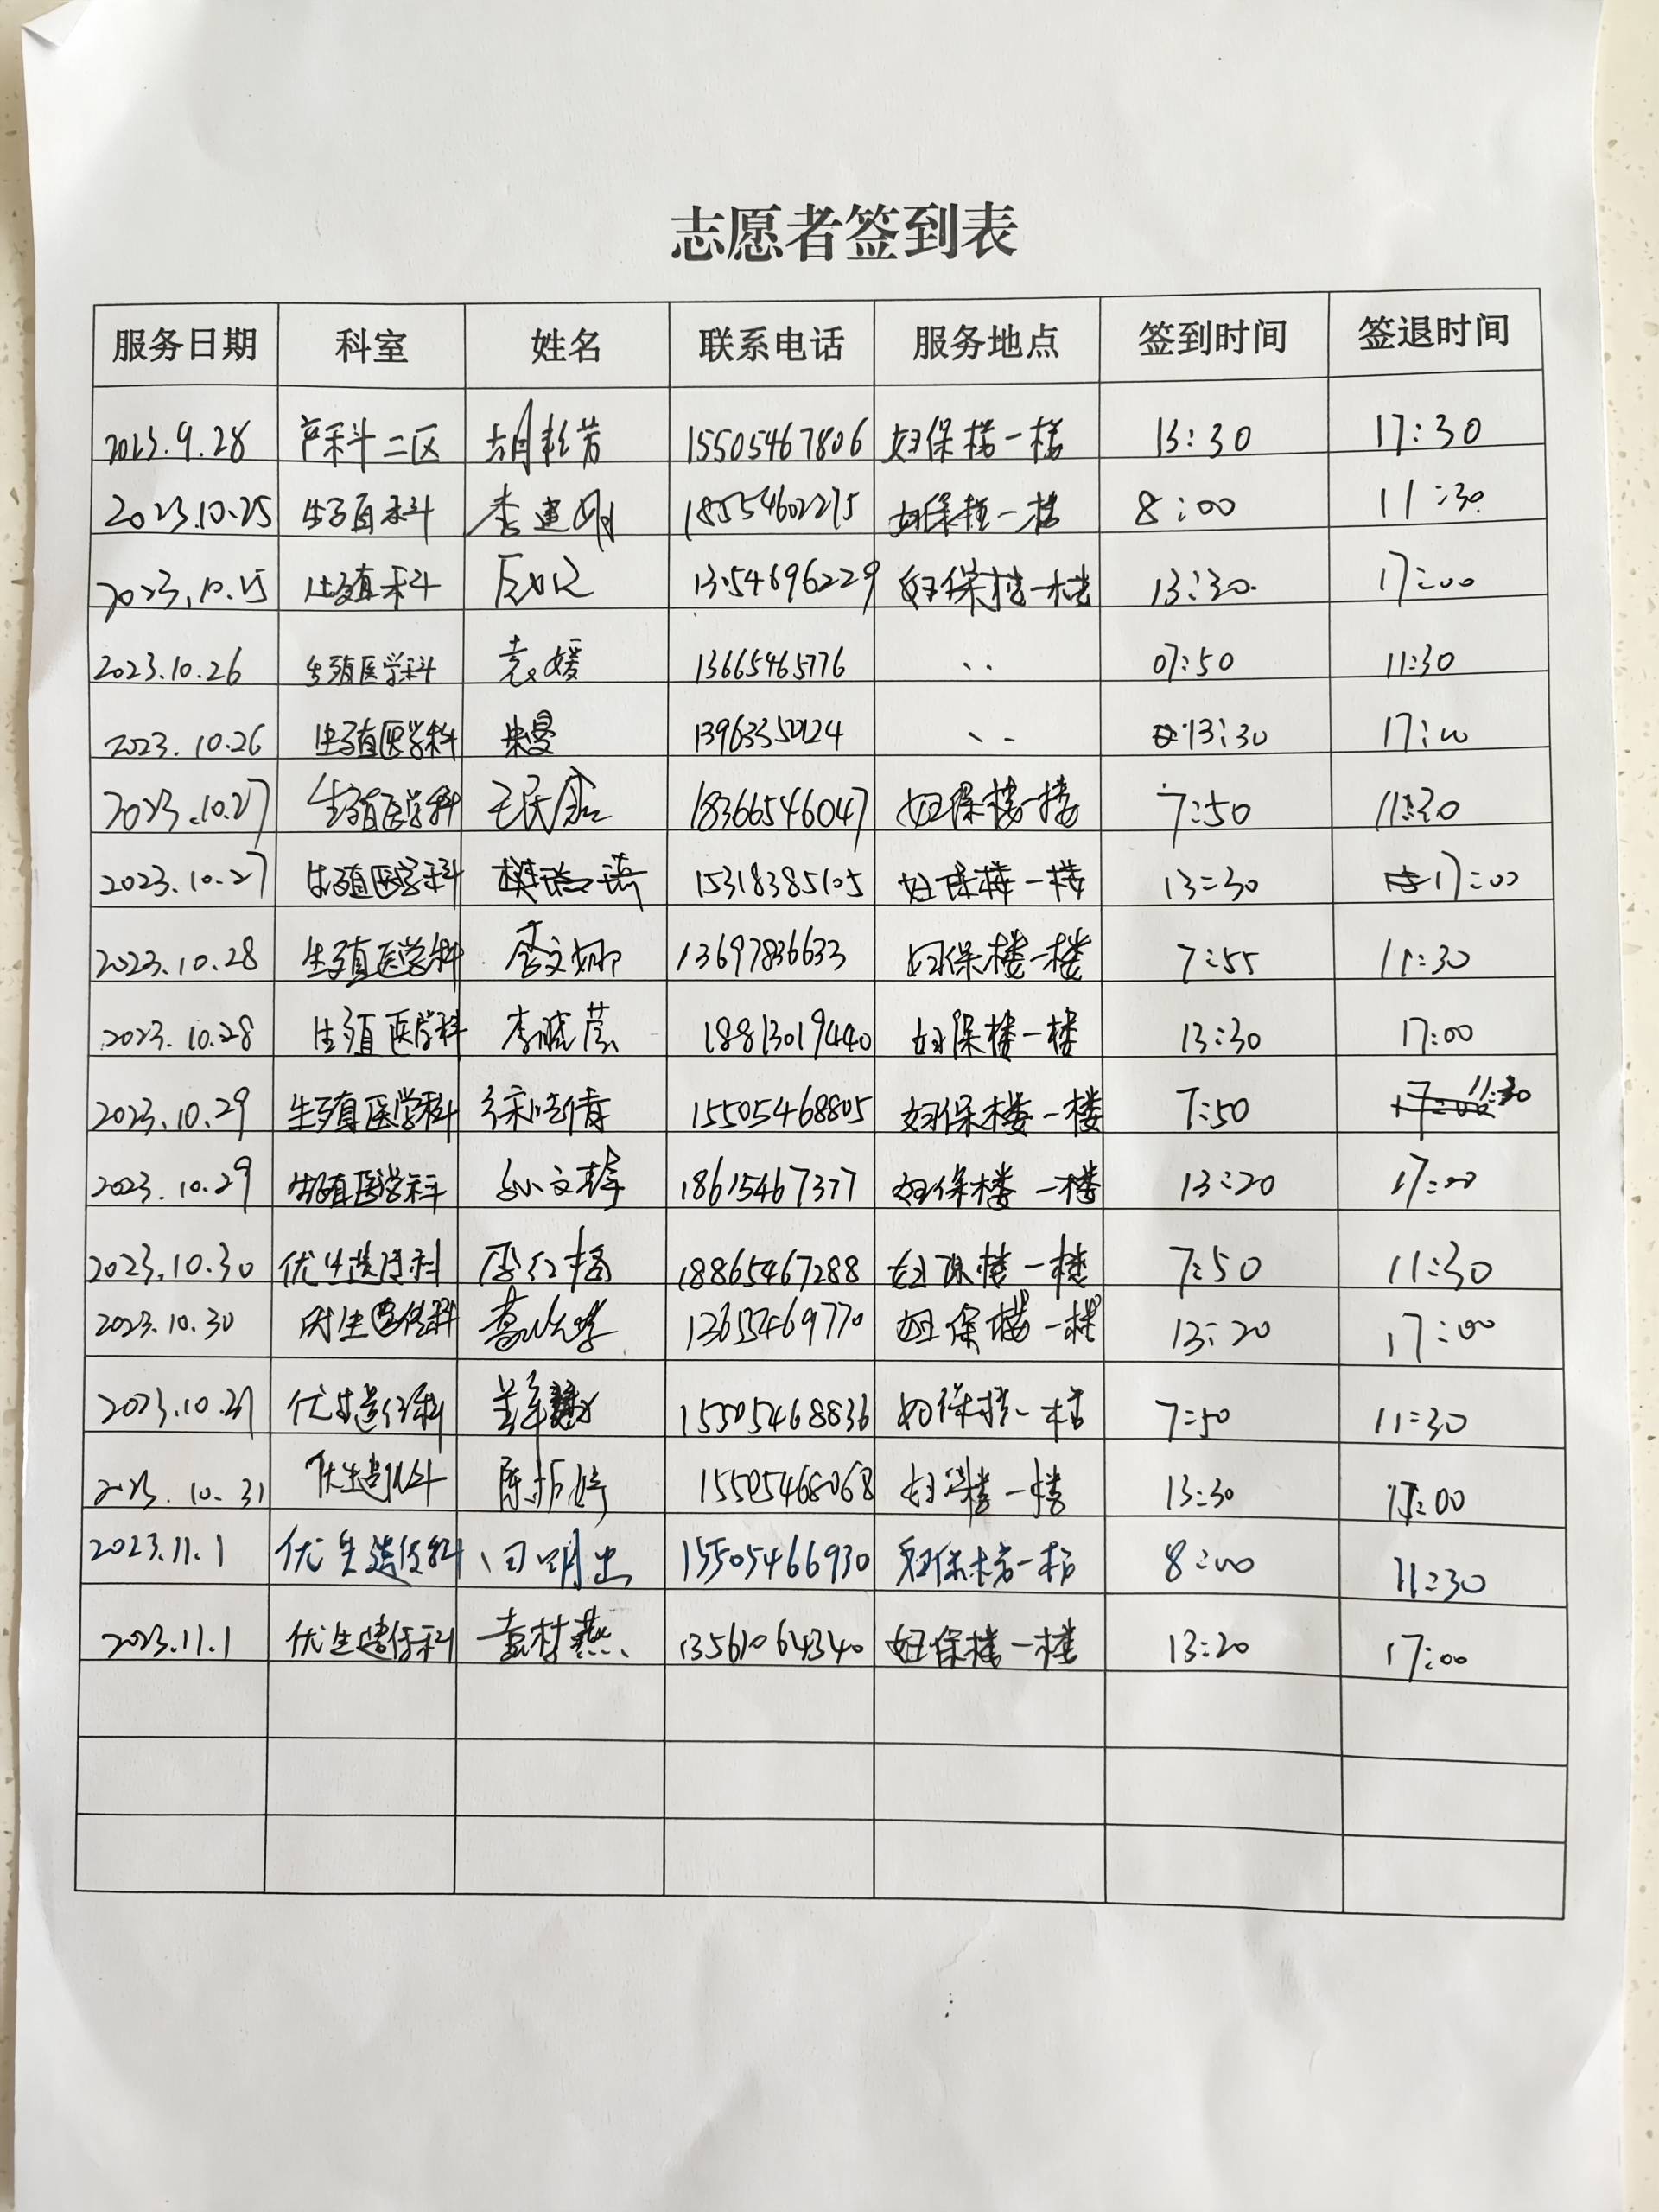 志愿者签到表
服务日期 科室 姓名 联系电话 服务地点 签到时间 签退时间
2023.9.28 产科二区 胡松芳 15505467806 妇保楼一楼 13:30 17:30
2023.10.25 生殖科 李建明 18554602275 妇保楼一楼 8:00 11:30
2023.10.25 生殖科 13954696229 妇保楼一楼 13:30 17:00
2023.10.26 生殖医学科 袁媛 13665465776 07:50 11:30
2023.10.26 生殖医学科 朱曼 13963350124 13:30 17:00
2023.10.27 生殖医学科 18366546047 妇保楼一楼 7:50 11:30
2023.10.27 生殖医学科 15318385105 妇保楼一楼 13:30 17:00
2023.10.28 生殖医学科 李文娜 13697836633 妇保楼一楼 7:55 11:30
2023.10.28 生殖医学科 李晓莹 18813019440 妇保楼一楼 13:30 17:00
2023.10.29 生殖医学科 15505468805 妇保楼一楼 7:50 11:30
2023.10.29 生殖医学科 18615467377 妇保楼一楼 13:20 17:00
2023.10.30 优生遗传科 18865467288 妇保楼一楼 7:50 11:30
2023.10.30 优生遗传科 13655469770 妇保楼一楼 13:20 17:00
2023.10.31 优生遗传科 15505468836 妇保楼一楼 7:50 11:30
2023.10.31 优生遗传科 15505468068 妇保楼一楼 13:30 17:00
2023.11.1 优生遗传科 15505466930 妇保楼一楼 8:00 11:30
2023.11.1 优生遗传科 袁村燕 13561064340 妇保楼一楼 13:20 17:00